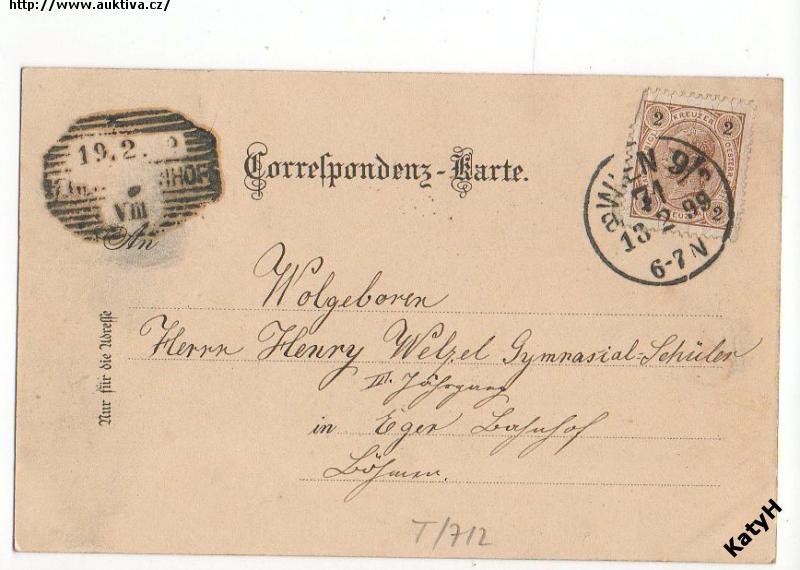 http://www.auktiva.cz/
19.2.
VIII
Correspondenz-Karte.
2 KREUZER 2
2
WIEN 9/
71
13 2 99
6-7 N
An
Wolgeboren
Herrn Henry Welzel Gymnasial-Schüler
III. Jahrgang
in Eger Bahnhof
Böhmen.
Nur für die Adresse
T/712
KatyH